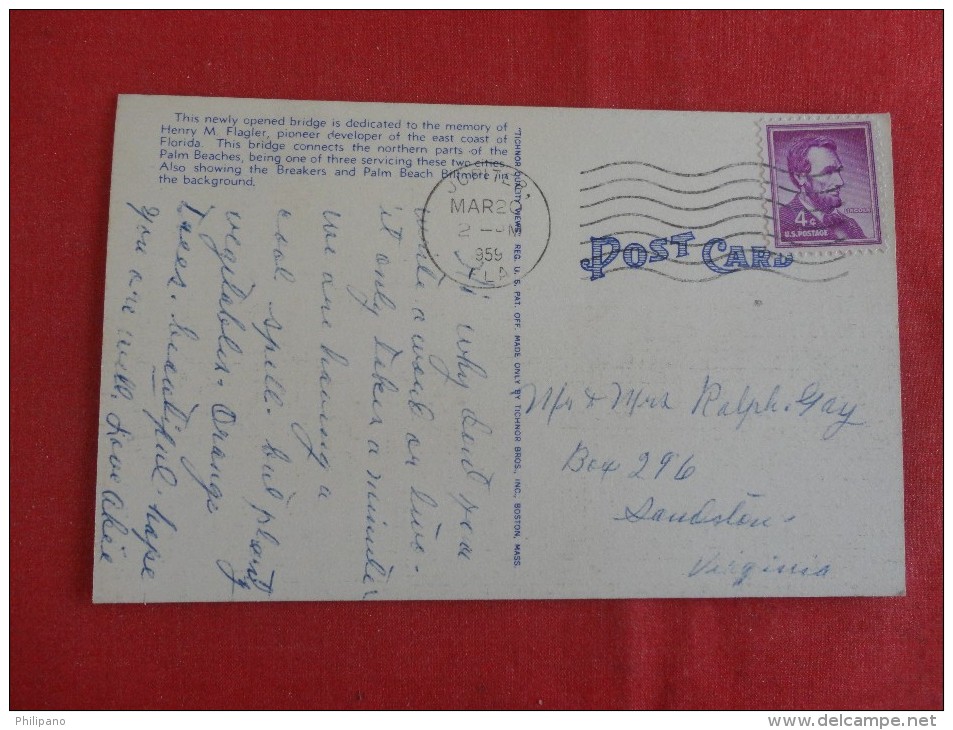 This newly opened bridge is dedicated to the memory of
Henry M. Flagler, pioneer developer of the east coast of
Florida. This bridge connects the northern parts of the
Palm Beaches, being one of three servicing these two cities.
Also showing the Breakers and Palm Beach Biltmore in
the background.
Hi why dont you
write a word or two.
it only takes a minute
we are having a
cool spell. but plenty
vegtables. Orange
trees. beautiful. hope
you are well. Love
"TICHNOR QUALITY VIEWS," REG. U. S. PAT. OFF. MADE ONLY BY TICHNOR BROS., INC., BOSTON, MASS.
JUPITER,
MAR 20
2 - PM
1959
FLA
4¢
LINCOLN
U.S. POSTAGE
POST CARD
Mr & Mrs Ralph. Gay
Box 296
Sandston
Virginia
Philipano
www.delcampe.net